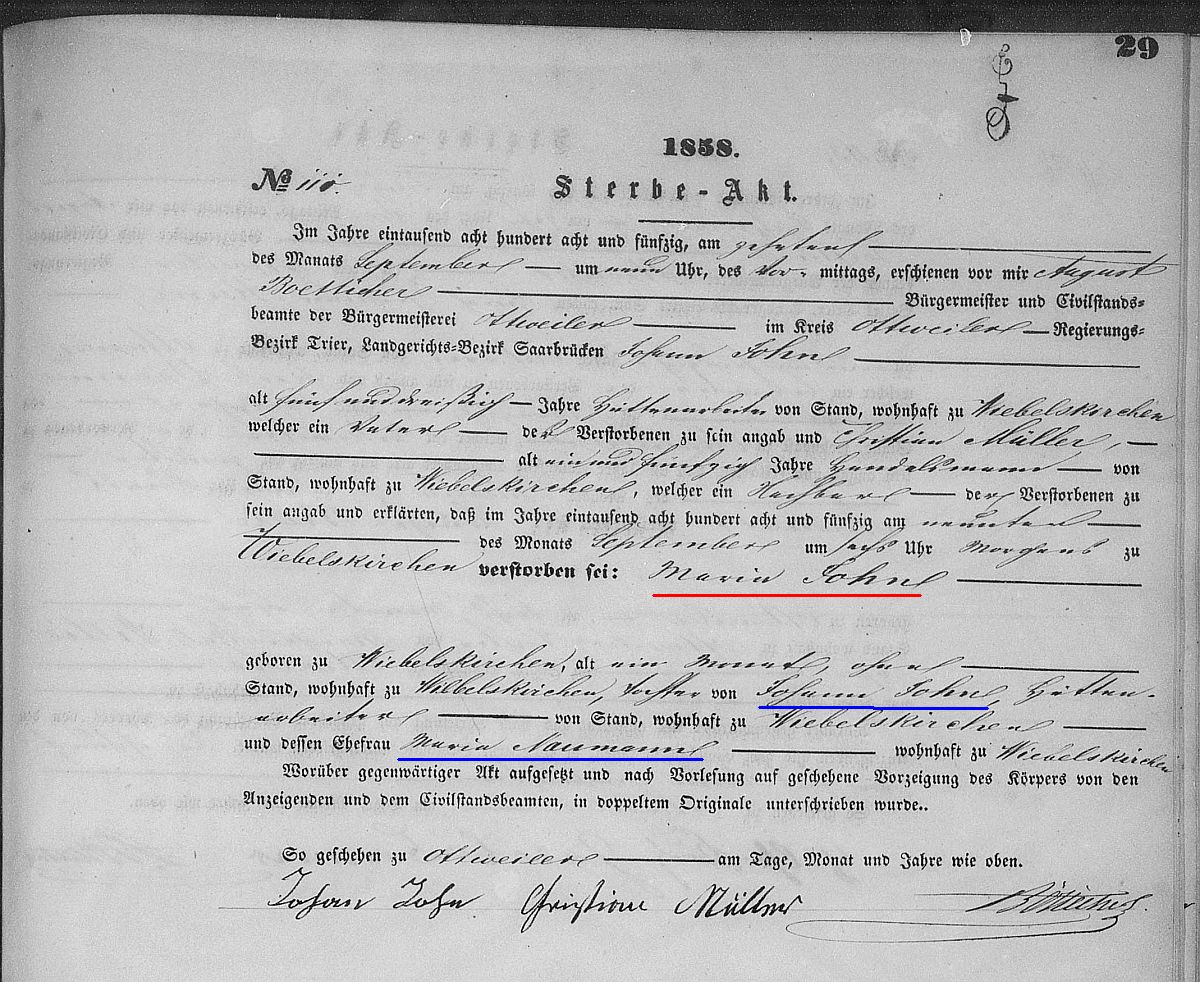 29
1858.
№ 110.
Sterbe-Akt.
Im Jahre eintausend acht hundert acht und fünfzig, am zehnten
des Monats September um neun Uhr, des Vor- mittags, erschienen vor mir August
Boetticher Bürgermeister und Civilstands-
beamte der Bürgermeisterei Ottweiler im Kreis Ottweiler Regierungs-
Bezirk Trier, Landgerichts-Bezirk Saarbrücken Johann John
alt fünf und dreißig Jahre Hüttenarbeiter von Stand, wohnhaft zu Wiebelskirchen
welcher ein Vater der Verstorbenen zu sein angab und Christian Müller,
alt ein und fünfzig Jahre Handelsmann von
Stand, wohnhaft zu Wiebelskirchen, welcher ein Nachbar der Verstorbenen zu
sein angab und erklärten, daß im Jahre eintausend acht hundert acht und fünfzig am neunten
des Monats September um sechs Uhr Morgens zu
Wiebelskirchen verstorben sei: Maria John
geboren zu Wiebelskirchen, alt ein Monat, ohne
Stand, wohnhaft zu Wiebelskirchen, Tochter von Johann John, Hütten-
arbeiter von Stand, wohnhaft zu Wiebelskirchen
und dessen Ehefrau Maria Naumann wohnhaft zu Wiebelskirchen
Worüber gegenwärtiger Akt aufgesetzt und nach Vorlesung auf geschehene Vorzeigung des Körpers von den
Anzeigenden und dem Civilstandsbeamten, in doppeltem Originale unterschrieben wurde..
So geschehen zu Ottweiler am Tage, Monat und Jahre wie oben.
Johan John Christian Müller Bötticher